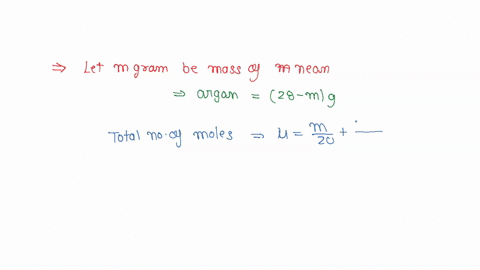 ⇒ Let m gram be mass of m nean
⇒ argan = (28-m)g
Total no. of moles ⇒ μ = m/20 +